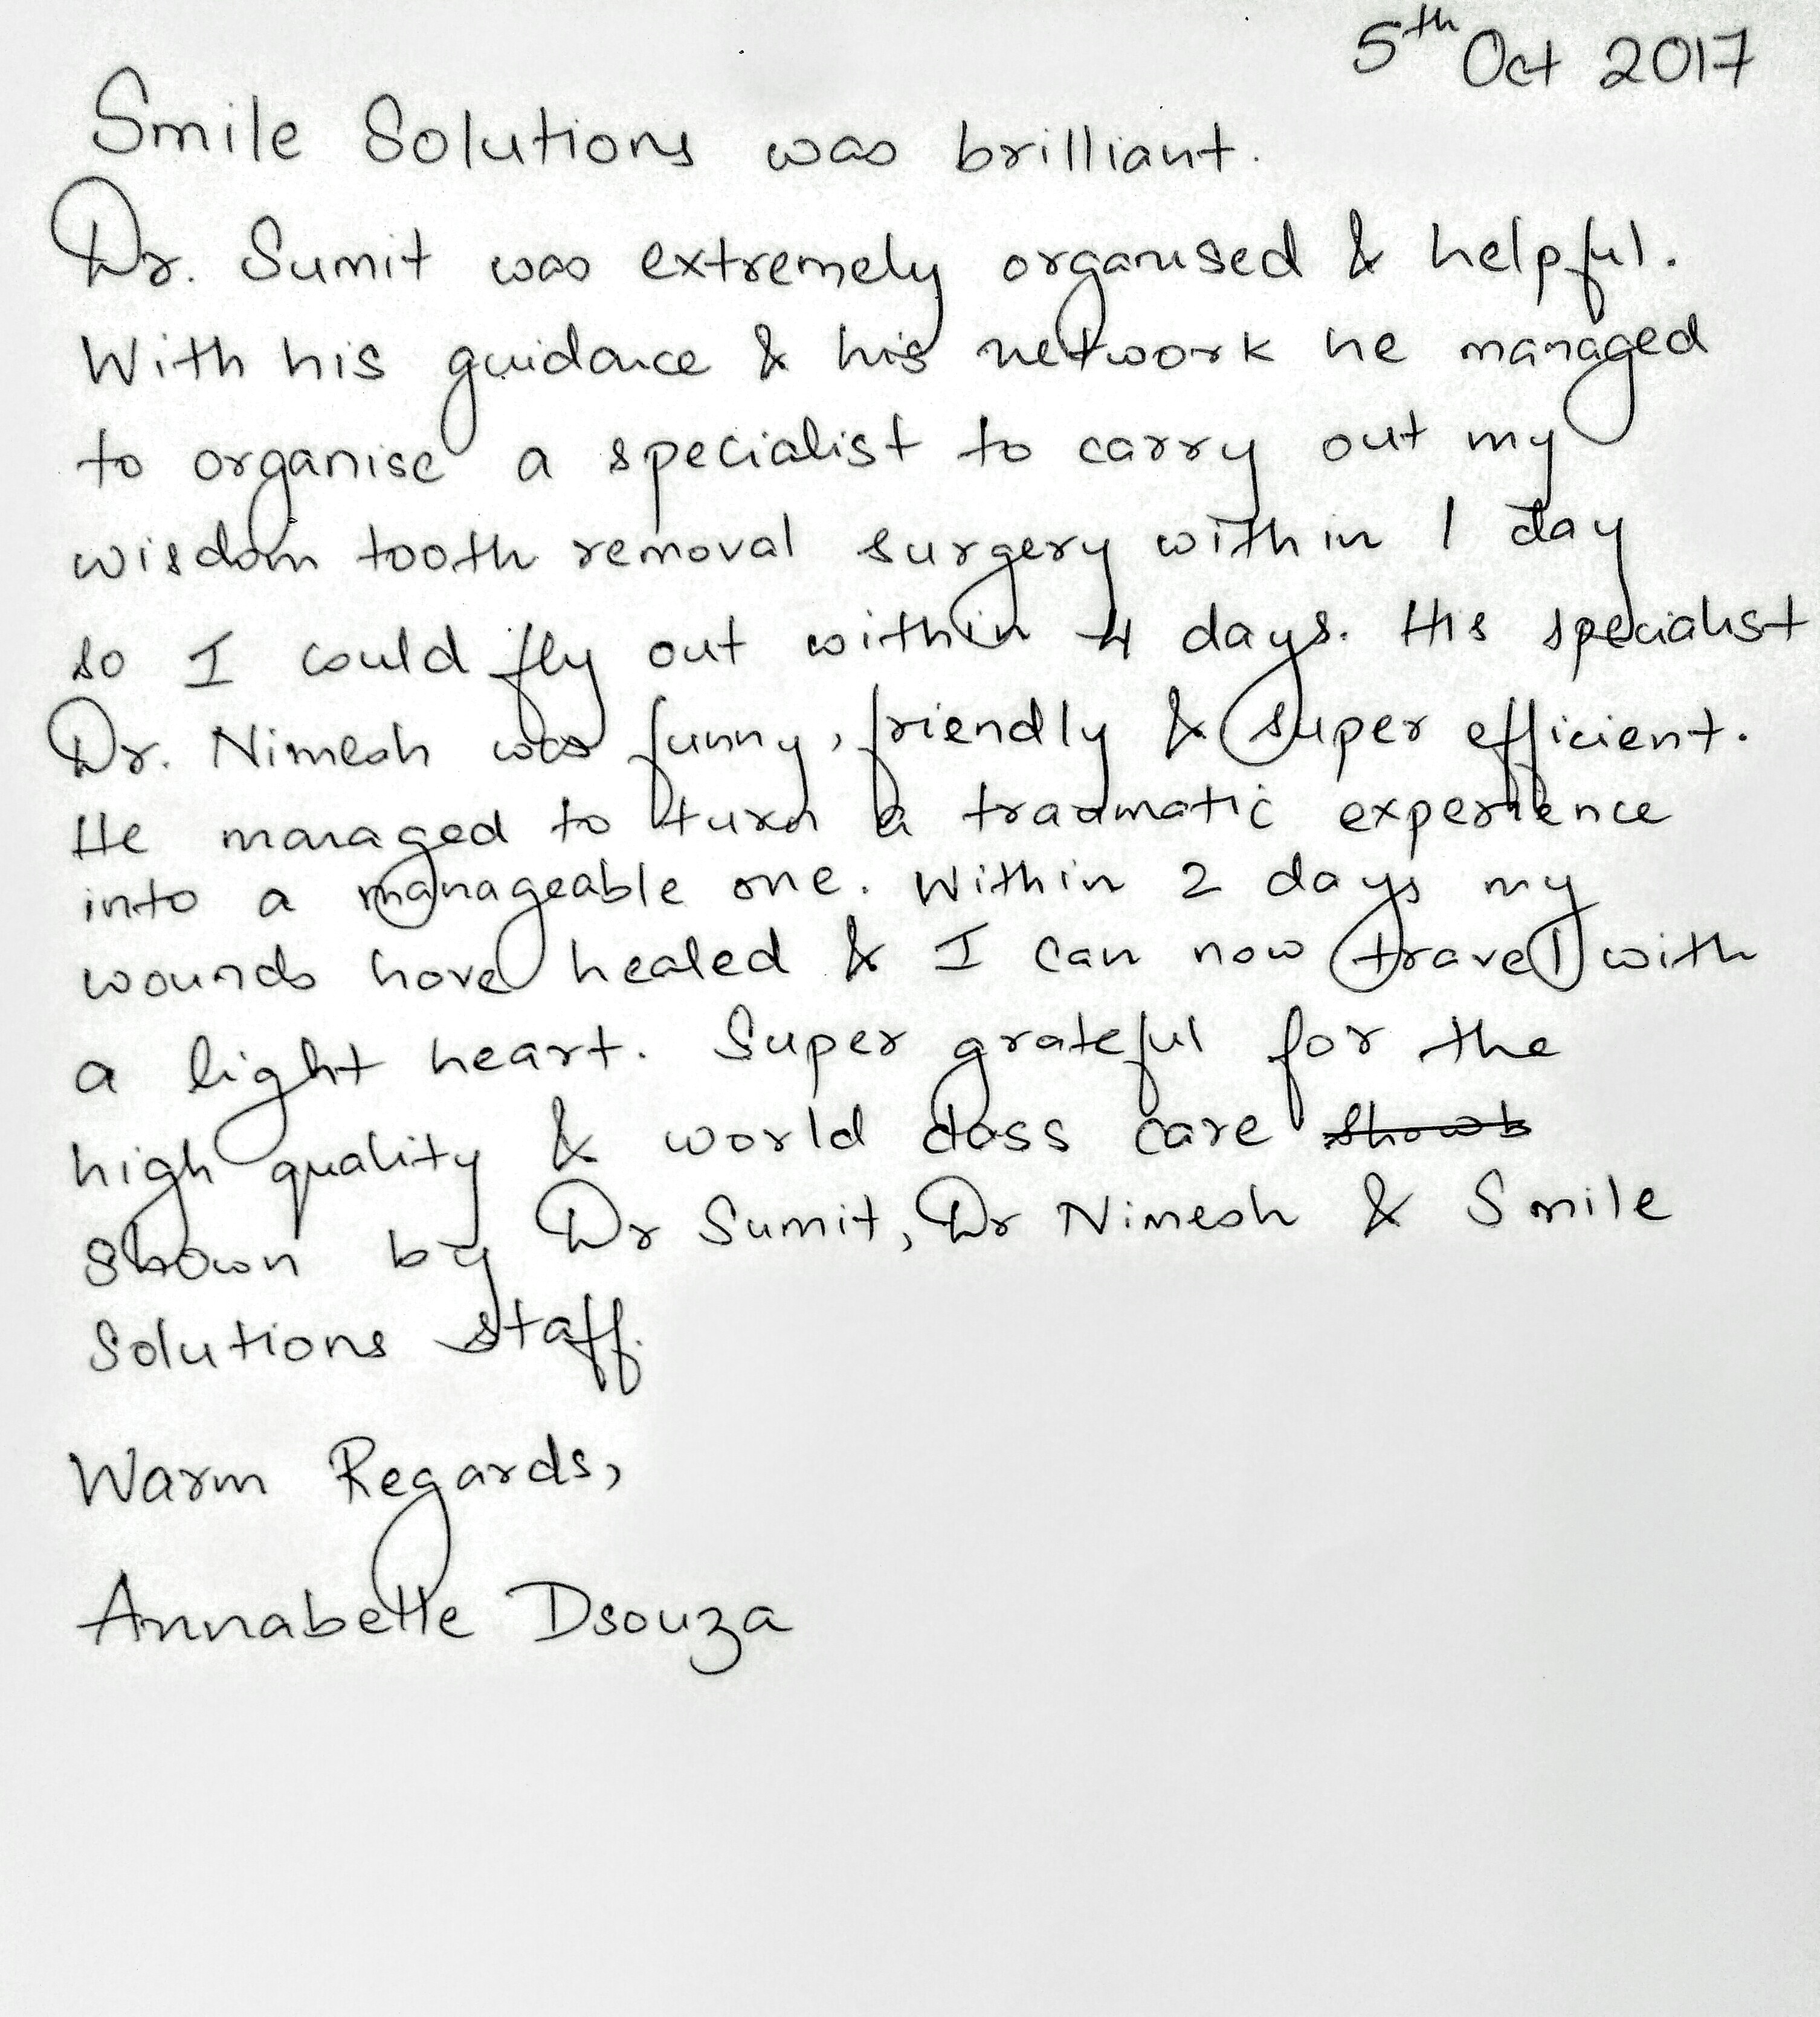 5th Oct 2017
Smile Solutions was brilliant.
Dr. Sumit was extremely organised & helpful.
With his guidance & his network he managed
to organise a specialist to carry out my
wisdom tooth removal surgery within 1 day
so I could fly out within 4 days. His specialist
Dr. Nimesh was funny, friendly & super efficient.
He managed to turn a traumatic experience
into a manageable one. Within 2 days my
wounds have healed & I can now travel with
a light heart. Super grateful for the
high quality & world class care
shown by Dr Sumit, Dr Nimesh & Smile
Solutions staff.
Warm Regards,
Annabelle Dsouza